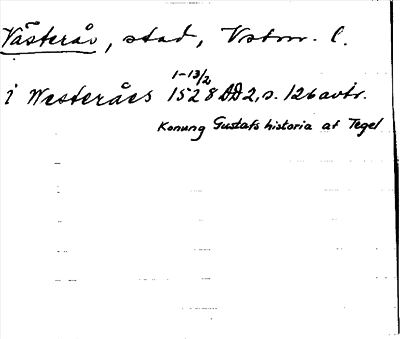 Västerås, stad, Vstm. l.
1-13/2
i Westeråes 1528 DD2, s. 126 avtr.
Konung Gustafs historia af Tegel